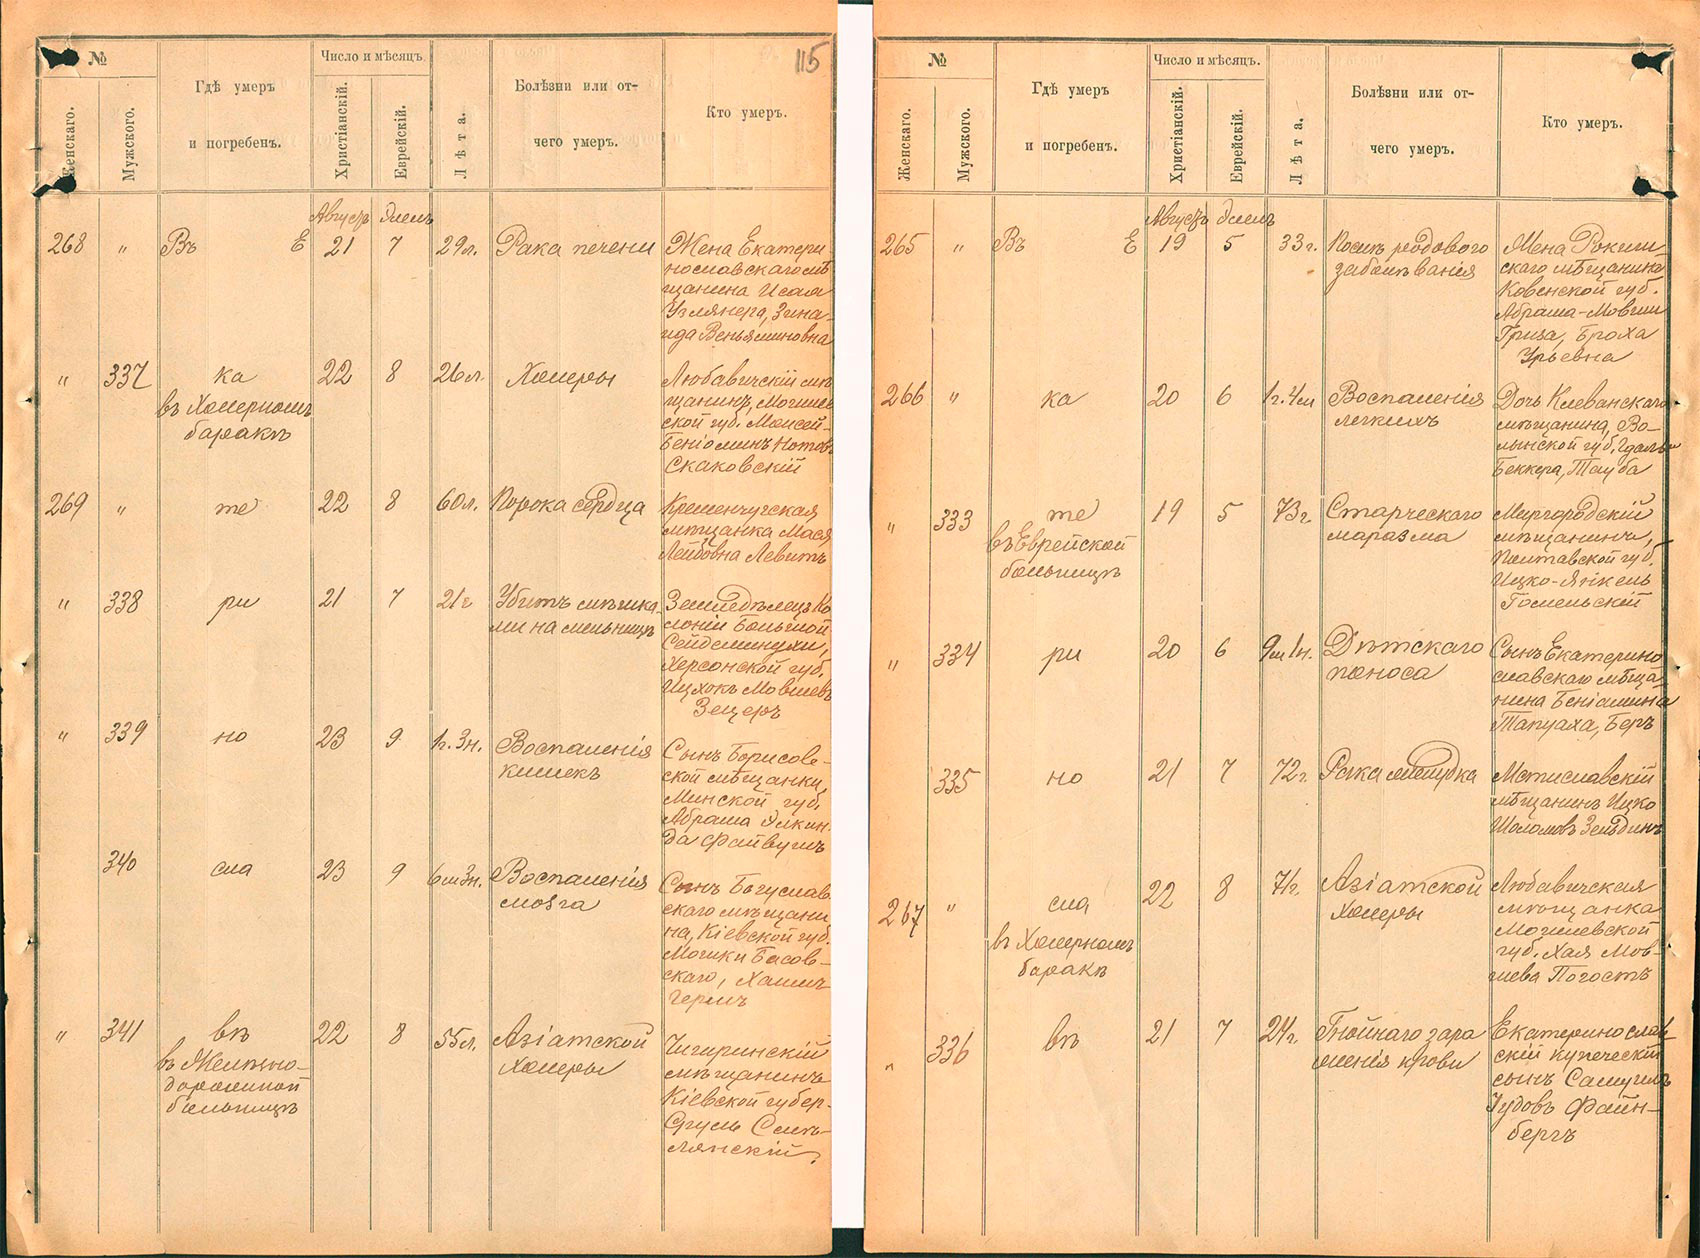 115
№
Женскаго.
Мужского.
Гдѣ умеръ
и погребенъ.
Число и мѣсяцъ.
Христіанскій.
Еврейскій.
Лѣта.
Болѣзни или от-
чего умеръ.
Кто умеръ.
Августъ
268 " Въ Е 21 7 29л. Рака печени
Жена Екатери
нославскаго мѣ
щанина Исаая
Углянера, Зина-
ида Веньяминовна
" 337 ка 22 8 26л. Холеры
въ Холерномъ
баракѣ
Любавичскій мѣ
щанинъ, Могилев
ской губ. Моисей-
Беніоминъ
Скаковскій
269 " те 22 8 60л. Порока сердца
Кременчугская
мѣщанка Мася
Лейбовна Левитъ
" 338 ри 21 7 21г Убитъ мѣшка
ми на мельницѣ
Земледѣлецъ Ко
лоніи Большой
Сейдеминухи,
Херсонской губ.
Ицхокъ Мовшевъ
Зецеръ
" 339 но 23 9 1г. 3н. Воспаленія
кишекъ
Сынъ Борисов-
ской мѣщанки,
Минской губ.
Абрама
да Файвушъ
340 сла 23 9 6м 3н. Воспаленія
мозга
Сынъ Богуслав
скаго мѣщани
на, Кіевской губ.
Мошки Басов-
скаго, Хаимъ
Гершъ
" 341 вѣ 22 8 55л. Азіатской
холеры
въ Желѣзно-
дорожной
больницѣ
Чигиринскій
мѣщанинъ
Кіевской губер.
Сруль Смѣ-
лянскій.
№
Женскаго.
Мужского.
Гдѣ умеръ
и погребенъ.
Число и мѣсяцъ.
Христіанскій.
Еврейскій.
Лѣта.
Болѣзни или от-
чего умеръ.
Кто умеръ.
Августъ
265 " Въ Е 19 5 33г. Послѣ родового
заболѣванія
Жена Рокиш-
скаго мѣщанина
Ковенской губ.
Абрама-Мовши
Гриза, Броха
Урьевна
266 " ка 20 6 1г. 4м Воспаленія
легкихъ
Дочь Клеванскаго
мѣщанина, Во-
лынской губ.
Беккера, Тауба
" 333 те 19 5 73г. Старческаго
маразма
въ Еврейской
больницѣ
Миргородскій
мѣщанинъ,
Полтавской губ.
Ицко-Янкель
Гомельскій
" 334 ри 20 6 9м 1н. Дѣтскаго
поноса
Сынъ Екатерино
славскаго мѣща
нина Беніамина
Тапуаха, Беръ
335 но 21 7 72г. Рака желудка
Мстиславскій
мѣщанинъ Ицко
Шоломовъ Зельдинъ
267 " сла 22 8 71г. Азіатской
холеры
въ Холерномъ
баракѣ
Любавичская
мѣщанка
Могилевской
губ. Хая Мов-
шева Погостъ
" 336 вѣ 21 7 24г. Гнойнаго зара
женія крови
Екатеринослав
скій купеческій
сынъ Самуилъ
Іудовъ Файн-
бергъ